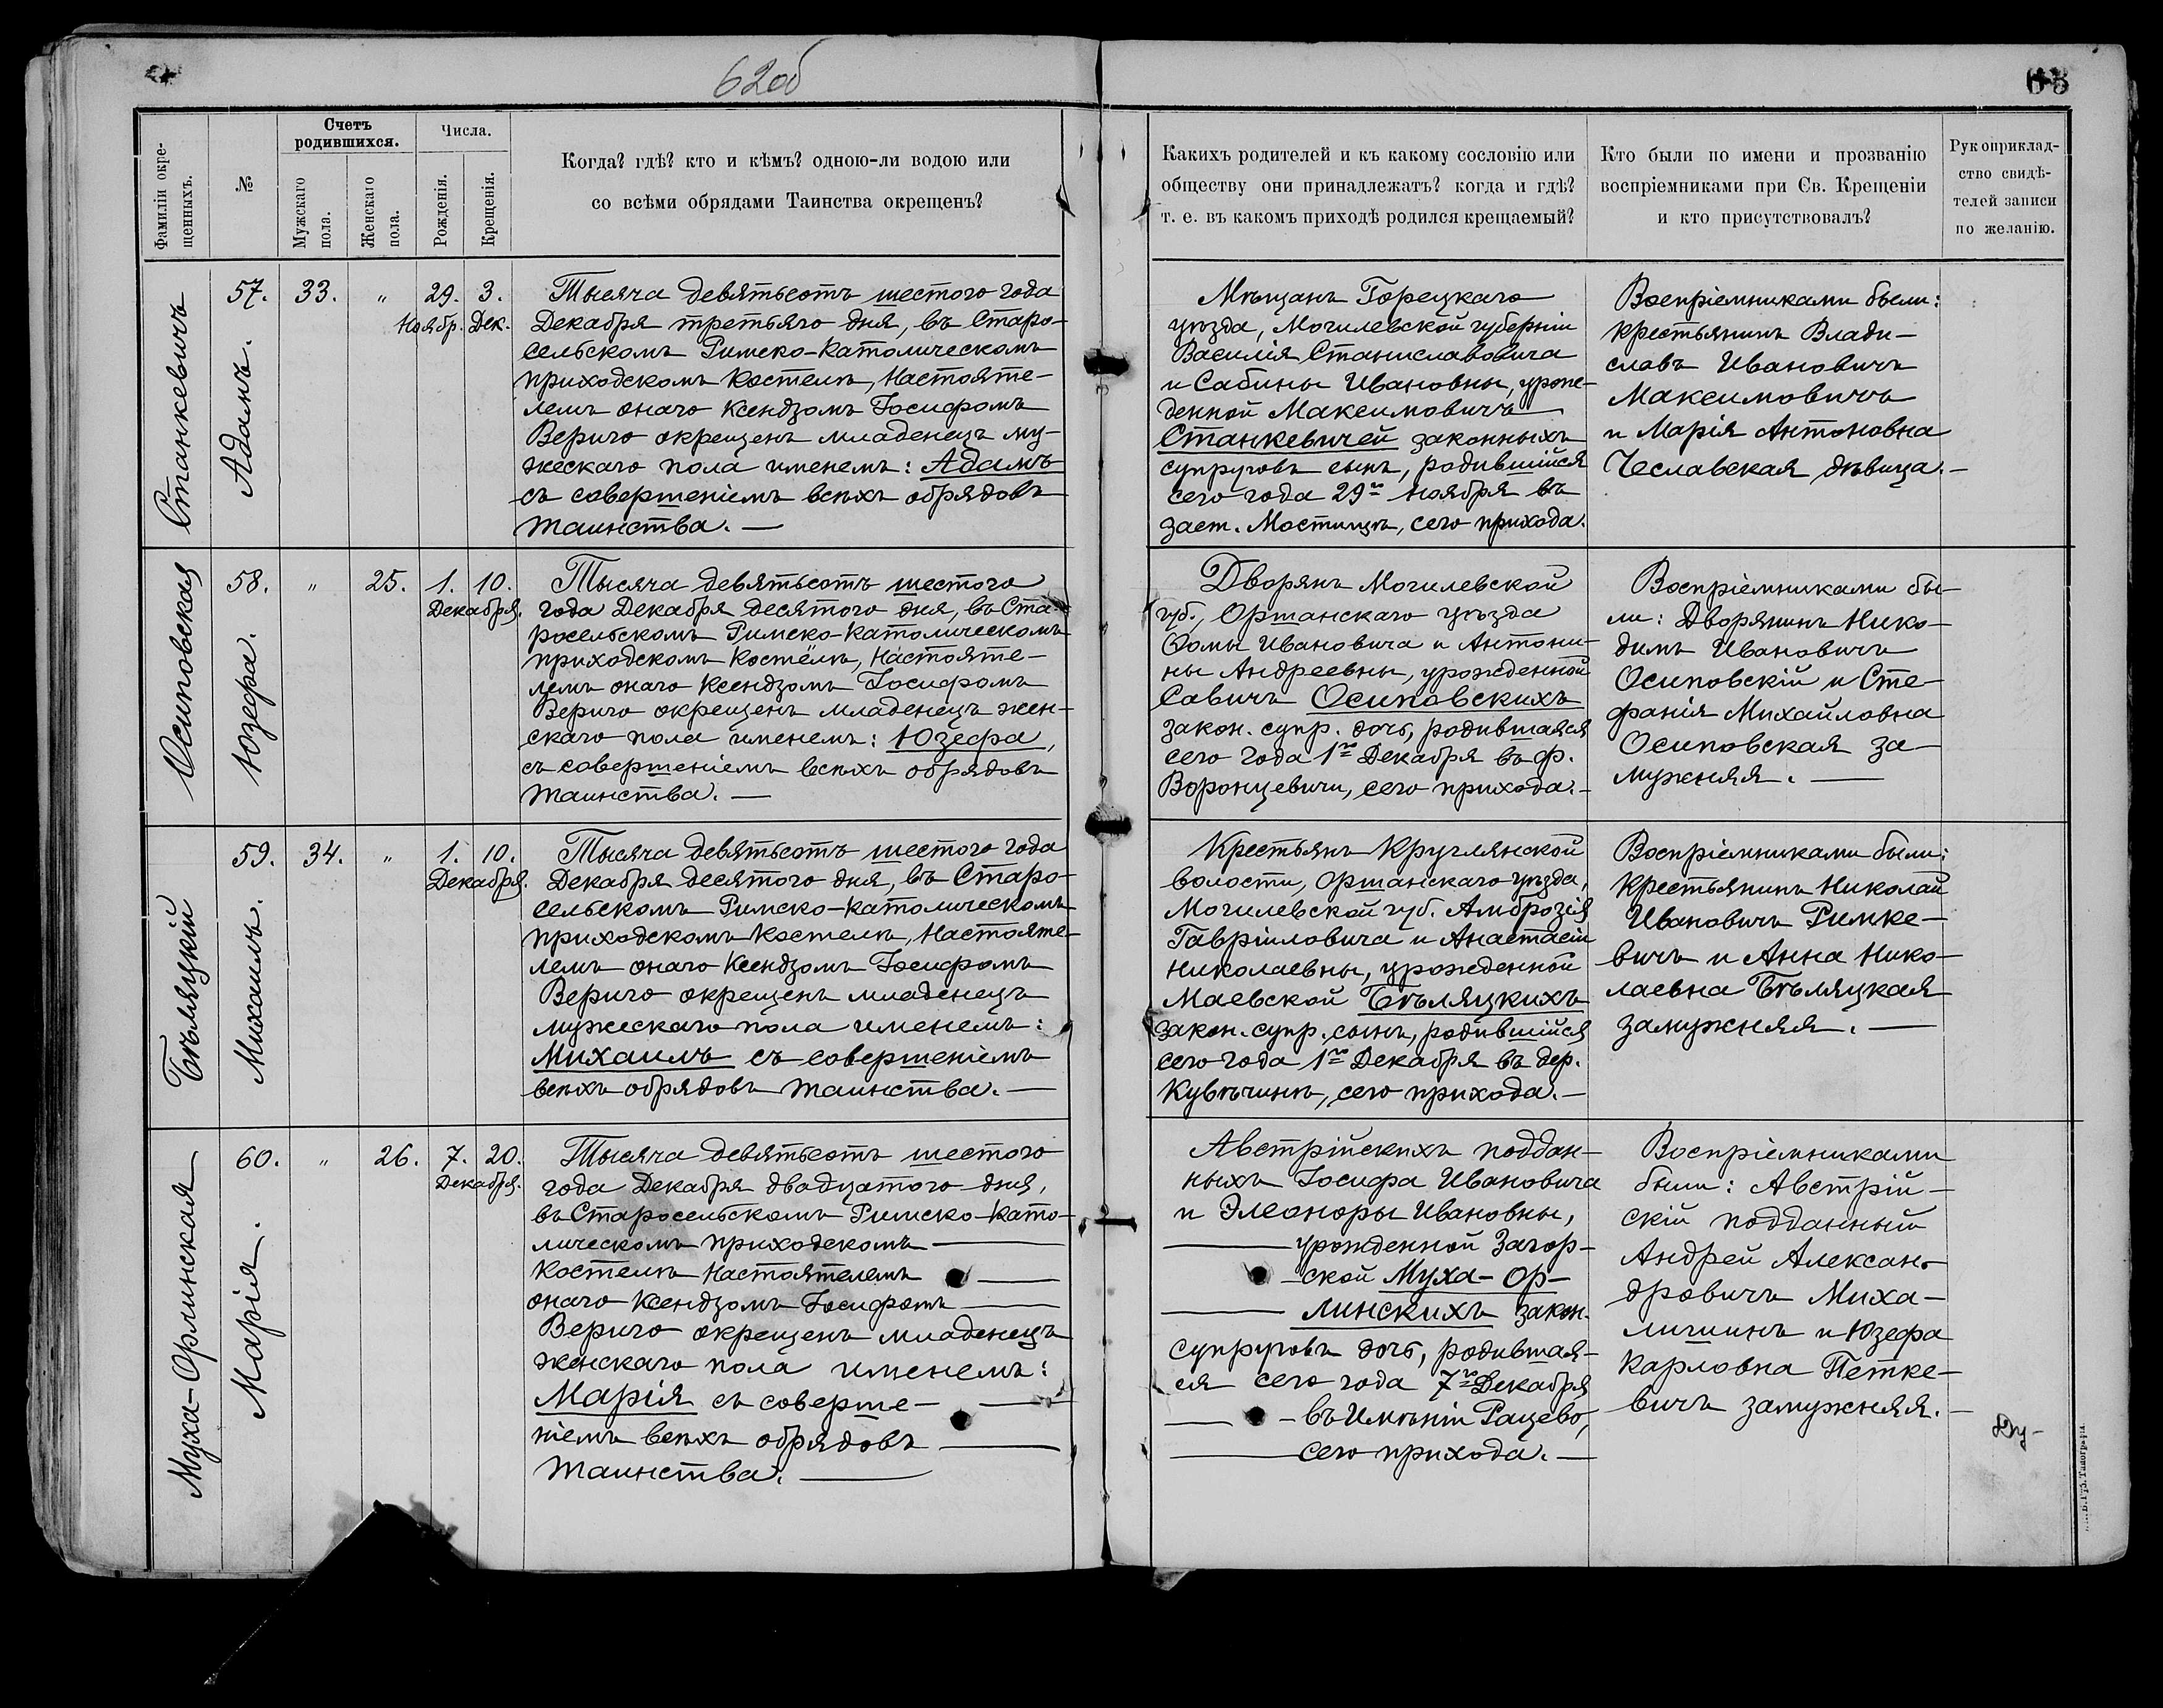 62об
63
Фамиліи окре-
щенныхъ.
№
Счетъ
родившихся.
Мужскаго
пола.
Женскаго
пола.
Числа.
Рожденія.
Крещенія.
Когда? гдѣ? кто и кѣмъ? одною-ли водою или
со всѣми обрядами Таинства окрещенъ?
Какихъ родителей и къ какому сословію или
обществу они принадлежатъ? когда и гдѣ?
т. е. въ какомъ приходѣ родился крещаемый?
Кто были по имени и прозванію
воспріемниками при Св. Крещеніи
и кто присутствовалъ?
Рукоприклад-
ство свидѣ-
телей записи
по желанію.
Станкевичъ
Адамъ.
57. 33. " 29. 3.
Ноябр. Дек.
Тысяча девятьсотъ шестого года
Декабря третьяго дня, въ Старо-
сельскомъ Римско-Католическомъ
приходскомъ костелѣ, Настояте-
лемъ онаго Ксендзомъ Іосифомъ
Вериго окрещенъ младенецъ му-
жескаго пола именемъ: Адамъ
съ совершеніемъ всѣхъ обрядовъ
таинства. —
Мѣщанъ Горецкаго
уѣзда, Могилевской губерніи
Василія Станиславовича
и Сабины Ивановны, урож-
денной Максимовичъ
Станкевичей законныхъ
супруговъ сынъ, родившійся
сего года 29го Ноября въ
заст. Мостищѣ, сего прихода.
Воспріемниками были:
крестьянинъ Влади-
славъ Ивановичъ
Максимовичъ
и Марія Антоновна
Чеславская дѣвица. —
Осиповская
Юзефа.
58. " 25. 1. 10.
Декабря.
Тысяча девятьсотъ шестого
года Декабря десятого дня, въ Ста-
росельскомъ Римско-Католическомъ
приходскомъ Костёлѣ, Настояте-
лемъ онаго Ксендзомъ Іосифомъ
Вериго окрещенъ младенецъ жен-
скаго пола именемъ: Юзефа,
съ совершеніемъ всѣхъ обрядовъ
таинства. —
Дворянъ Могилевской
губ., Оршанскаго уѣзда
Ѳомы Ивановича и Антони-
ны Андреевны, урожденной
Савичъ Осиповскихъ
закон. супр. дочь, родившаяся
сего года 1го Декабря въ ф.
Воронцевичи, сего прихода. —
Воспріемниками бы-
ли: Дворянинъ Нико-
димъ Ивановичъ
Осиповскій и Сте-
фанія Михайловна
Осиповская за-
мужняя. —
Бѣляцкій
Михаилъ.
59. 34. " 1. 10.
Декабря.
Тысяча девятьсотъ шестого года
Декабря десятого дня, въ Старо-
сельскомъ Римско-Католическомъ
приходскомъ Костелѣ, Настояте-
лемъ онаго Ксендзомъ Іосифомъ
Вериго окрещенъ младенецъ
мужескаго пола именемъ:
Михаилъ съ совершеніемъ
всѣхъ обрядовъ таинства. —
Крестьянъ Круглянской
волости, Оршанскаго уѣзда,
Могилевской губ. Амброзія
Гавріиловича и Анастасіи
Николаевны, урожденной
Маевской Бѣляцкихъ
закон. супр. сынъ, родившійся
сего года 1го Декабря въ дер.
Кувѣчинѣ, сего прихода. —
Воспріемниками были:
Крестьянинъ Николай
Ивановичъ Римке-
вичъ и Анна Нико-
лаевна Бѣляцкая
замужняя. —
Муха-Орлинская
Марія.
60. " 26. 7. 20.
Декабря.
Тысяча девятьсотъ шестого
года Декабря двадцатого дня,
въ Старосельскомъ Римско-Като-
лическомъ приходскомъ —
Костелѣ Настоятелемъ —
онаго Ксендзомъ Іосифомъ —
Вериго окрещенъ младенецъ
женскаго пола именемъ:
Марія съ соверше- —
ніемъ всѣхъ обрядовъ —
таинства. —
Австрійскихъ поддан-
ныхъ Іосифа Ивановича
и Элеоноры Ивановны,
— урожденной Загор-
— ской Муха-Ор-
— линскихъ закон.
супруговъ дочь, родившая-
ся сего года 7го Декабря
— въ Имѣніи Рацево,
— сего прихода. —
Воспріемниками
были: Австрій-
скій подданный
Андрей Алексан-
дровичъ Миха-
личинъ и Юзефа
Карловна Петке-
вичъ замужняя. —